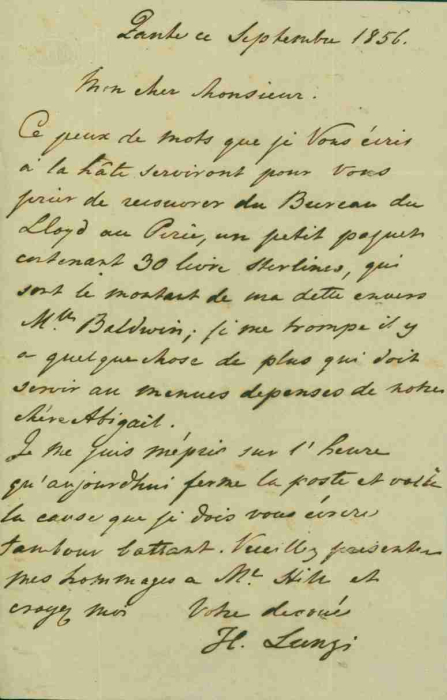 Zante ce Septembre 1856.
Mon cher Monsieur.
Ce peux de mots que je Vous écris
à la hâte serviront pour Vous
prier de recouvrer du Bureau du
Lloyd au Pirée, un petit paquet
contenant 30 livre sterlines, qui
sont le montant de ma dette envers
Mlle Baldwin; si me trompe il y
a quelque chose de plus qui doit
servir au menues depenses de notre
chère Abigail.
Je me suis mépris sur l'heure
qu'aujourdhui ferme la poste et voilà
la cause que je dois vous écrire
tambour battant. Veuillez presenter
mes hommages a Mr. Hill et
croyez moi Votre devoué
H. Lunzi